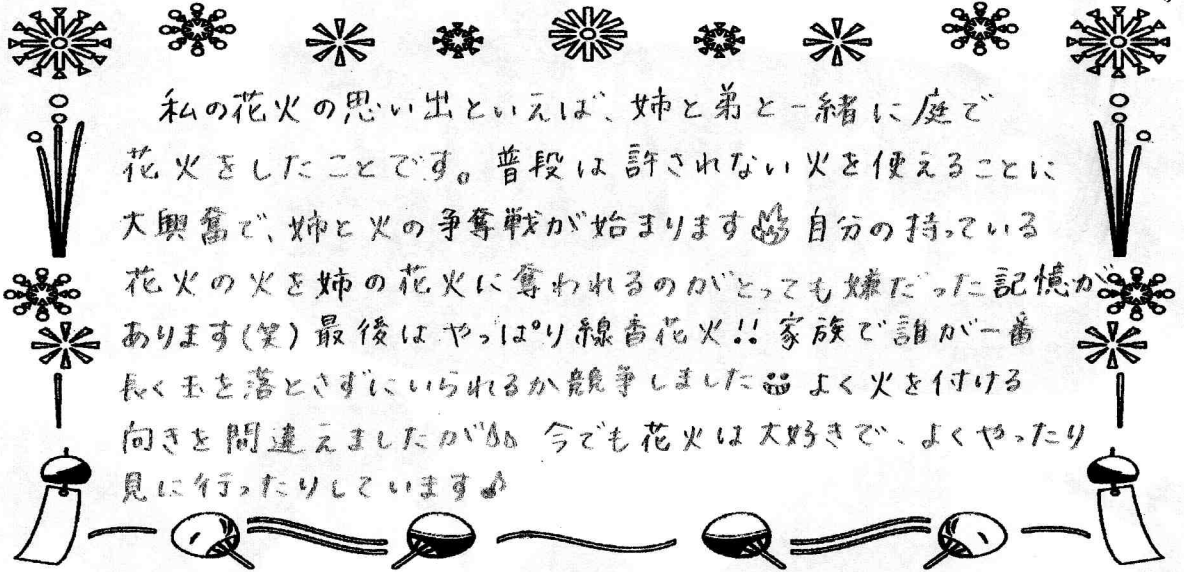 私の花火の思い出といえば、姉と弟と一緒に庭で
花火をしたことです。普段は許されない火を使えることに
大興奮で、姉と火の争奪戦が始まります 自分の持っている
花火の火を姉の花火に奪われるのがとっても嫌だった記憶が
あります(笑) 最後はやっぱり線香花火!! 家族で誰が一番
長く玉を落とさずにいられるか競争しました よく火を付ける
向きを間違えましたが 今でも花火は大好きで、よくやったり
見に行ったりしています♪